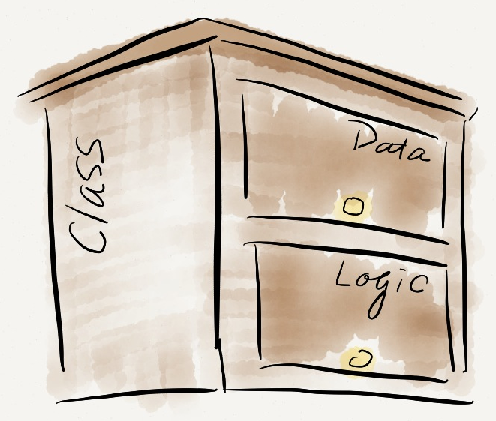 Class
Data
Logic